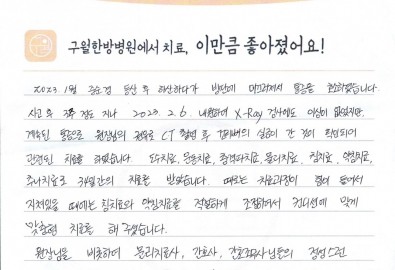 구월한방병원에서 치료, 이만큼 좋아졌어요!
2023. 1월 중순경 등산 후 하산하다가 빙판에 미끄러져서 몸을 다쳤습니다.
사고 후 정도 지나 2023. 2. 6. 내원하여 X-Ray 검사에도 이상이 없었지만,
계속된 통증으로 원장님의 권유로 CT 촬영 후 실금이 간 것이 확인되어
관련된 치료를 하였습니다. 도수치료, 운동치료, 충격파치료, 물리치료, 침치료, 약침치료,
추나치료로 34일간의 치료를 받았습니다. 때로는 치료과정이 힘이 들어서
지쳐있을 때에는 침치료와 약침치료를 적절하게 조절하면서 컨디션에 맞게
맞춤형 치료를 해 주셨습니다.
원장님을 비롯하여 물리치료사, 간호사, 간호조무사님들의 정성스런